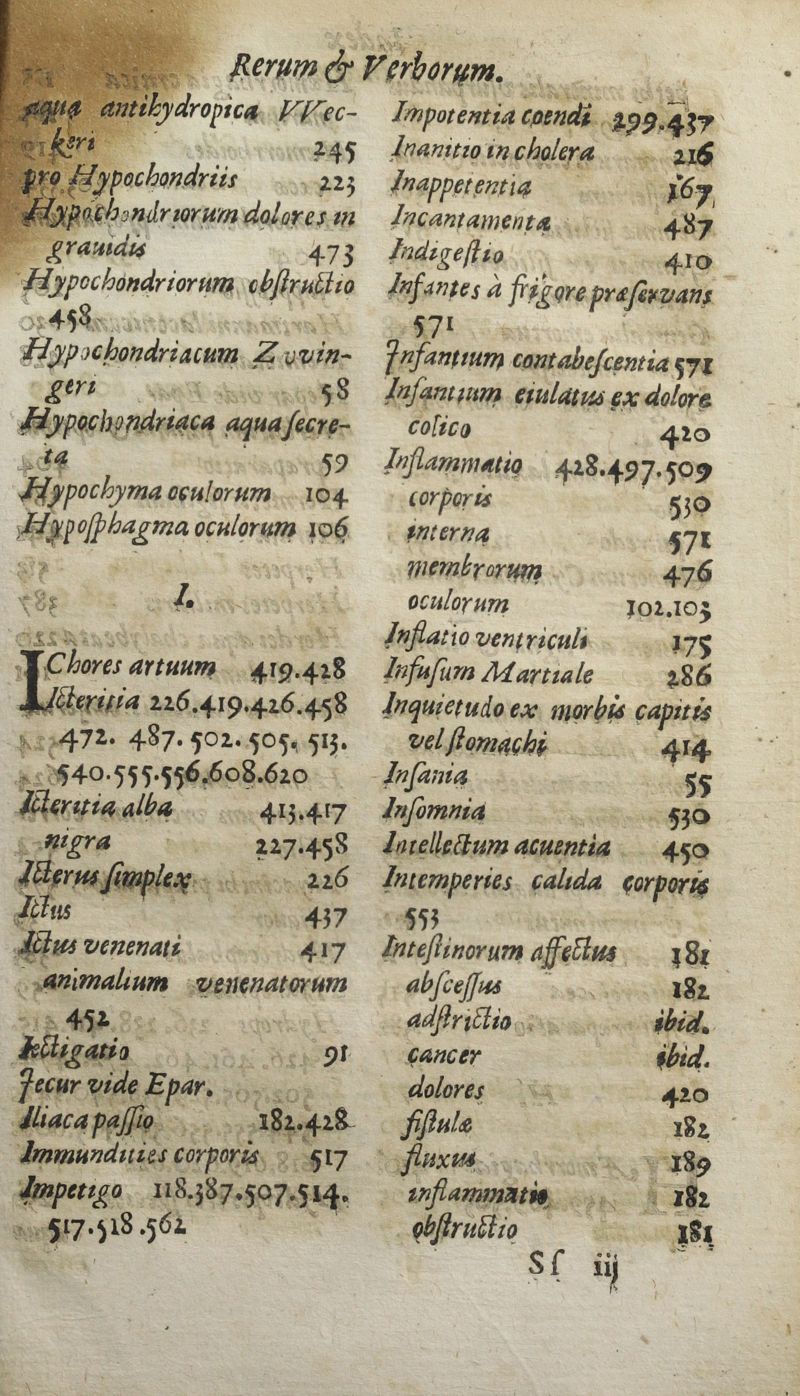 Rerum & Verborum.
aqua antihydropica VVec-
keri 245
pro Hypochondriis 223
Hypochondriorum dolores in
grauidis 473
Hypochondriorum obſtructio
458
Hypochondriacum Zvvin-
geri 58
Hypochondriaca aqua ſecre-
ta 59
Hypochyma oculorum 104
Hypoſphagma oculorum 106
I.
IChores artuum 419.428
Icteritia 226.419.426.458
472. 487. 502. 505. 513.
540.555.556.608.620
Icteritia alba 413.417
nigra 227.458
Icterus ſimplex 226
Ictus 437
Ictus venenati 417
animalium venenatorum
452
Iectigatio 91
Jecur vide Epar.
Iliaca paſſio 182.428
Immundities corporis 517
Impetigo 118.387.507.514.
517.518.562
Impotentia coendi 299.437
Inanitio in cholera 216
Inappetentia 167
Incantamenta 487
Indigeſtio 410
Infantes à frigore præſervans
571
Infantium contabeſcentia 571
Infantium eiulatus ex dolore
colico 420
Inflammatio 428.497.509
corporis 530
interna 571
membrorum 476
oculorum 102.103
Inflatio ventriculi 175
Infuſum Martiale 286
Inquietudo ex morbis capitis
vel ſtomachi 414
Inſania 55
Inſomnia 530
Intellectum acuentia 450
Intemperies calida corporis
553
Inteſtinorum affectus 181
abſceſſus 182
adſtrictio ibid.
cancer ibid.
dolores 420
fiſtulæ 182
fluxus 189
inflammatio 182
obſtructio 181
Sſ iij